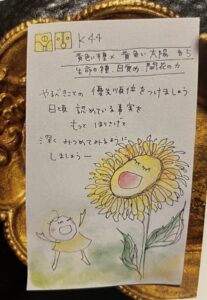 K44
黄色い種 × 黄色い太陽 から
生命の種、目覚め 開花の力
やるべきことの優先順位をつけましょう
日頃 認めている事実を
もっと ほりさげて
深く みつめてみるように
しましょうー